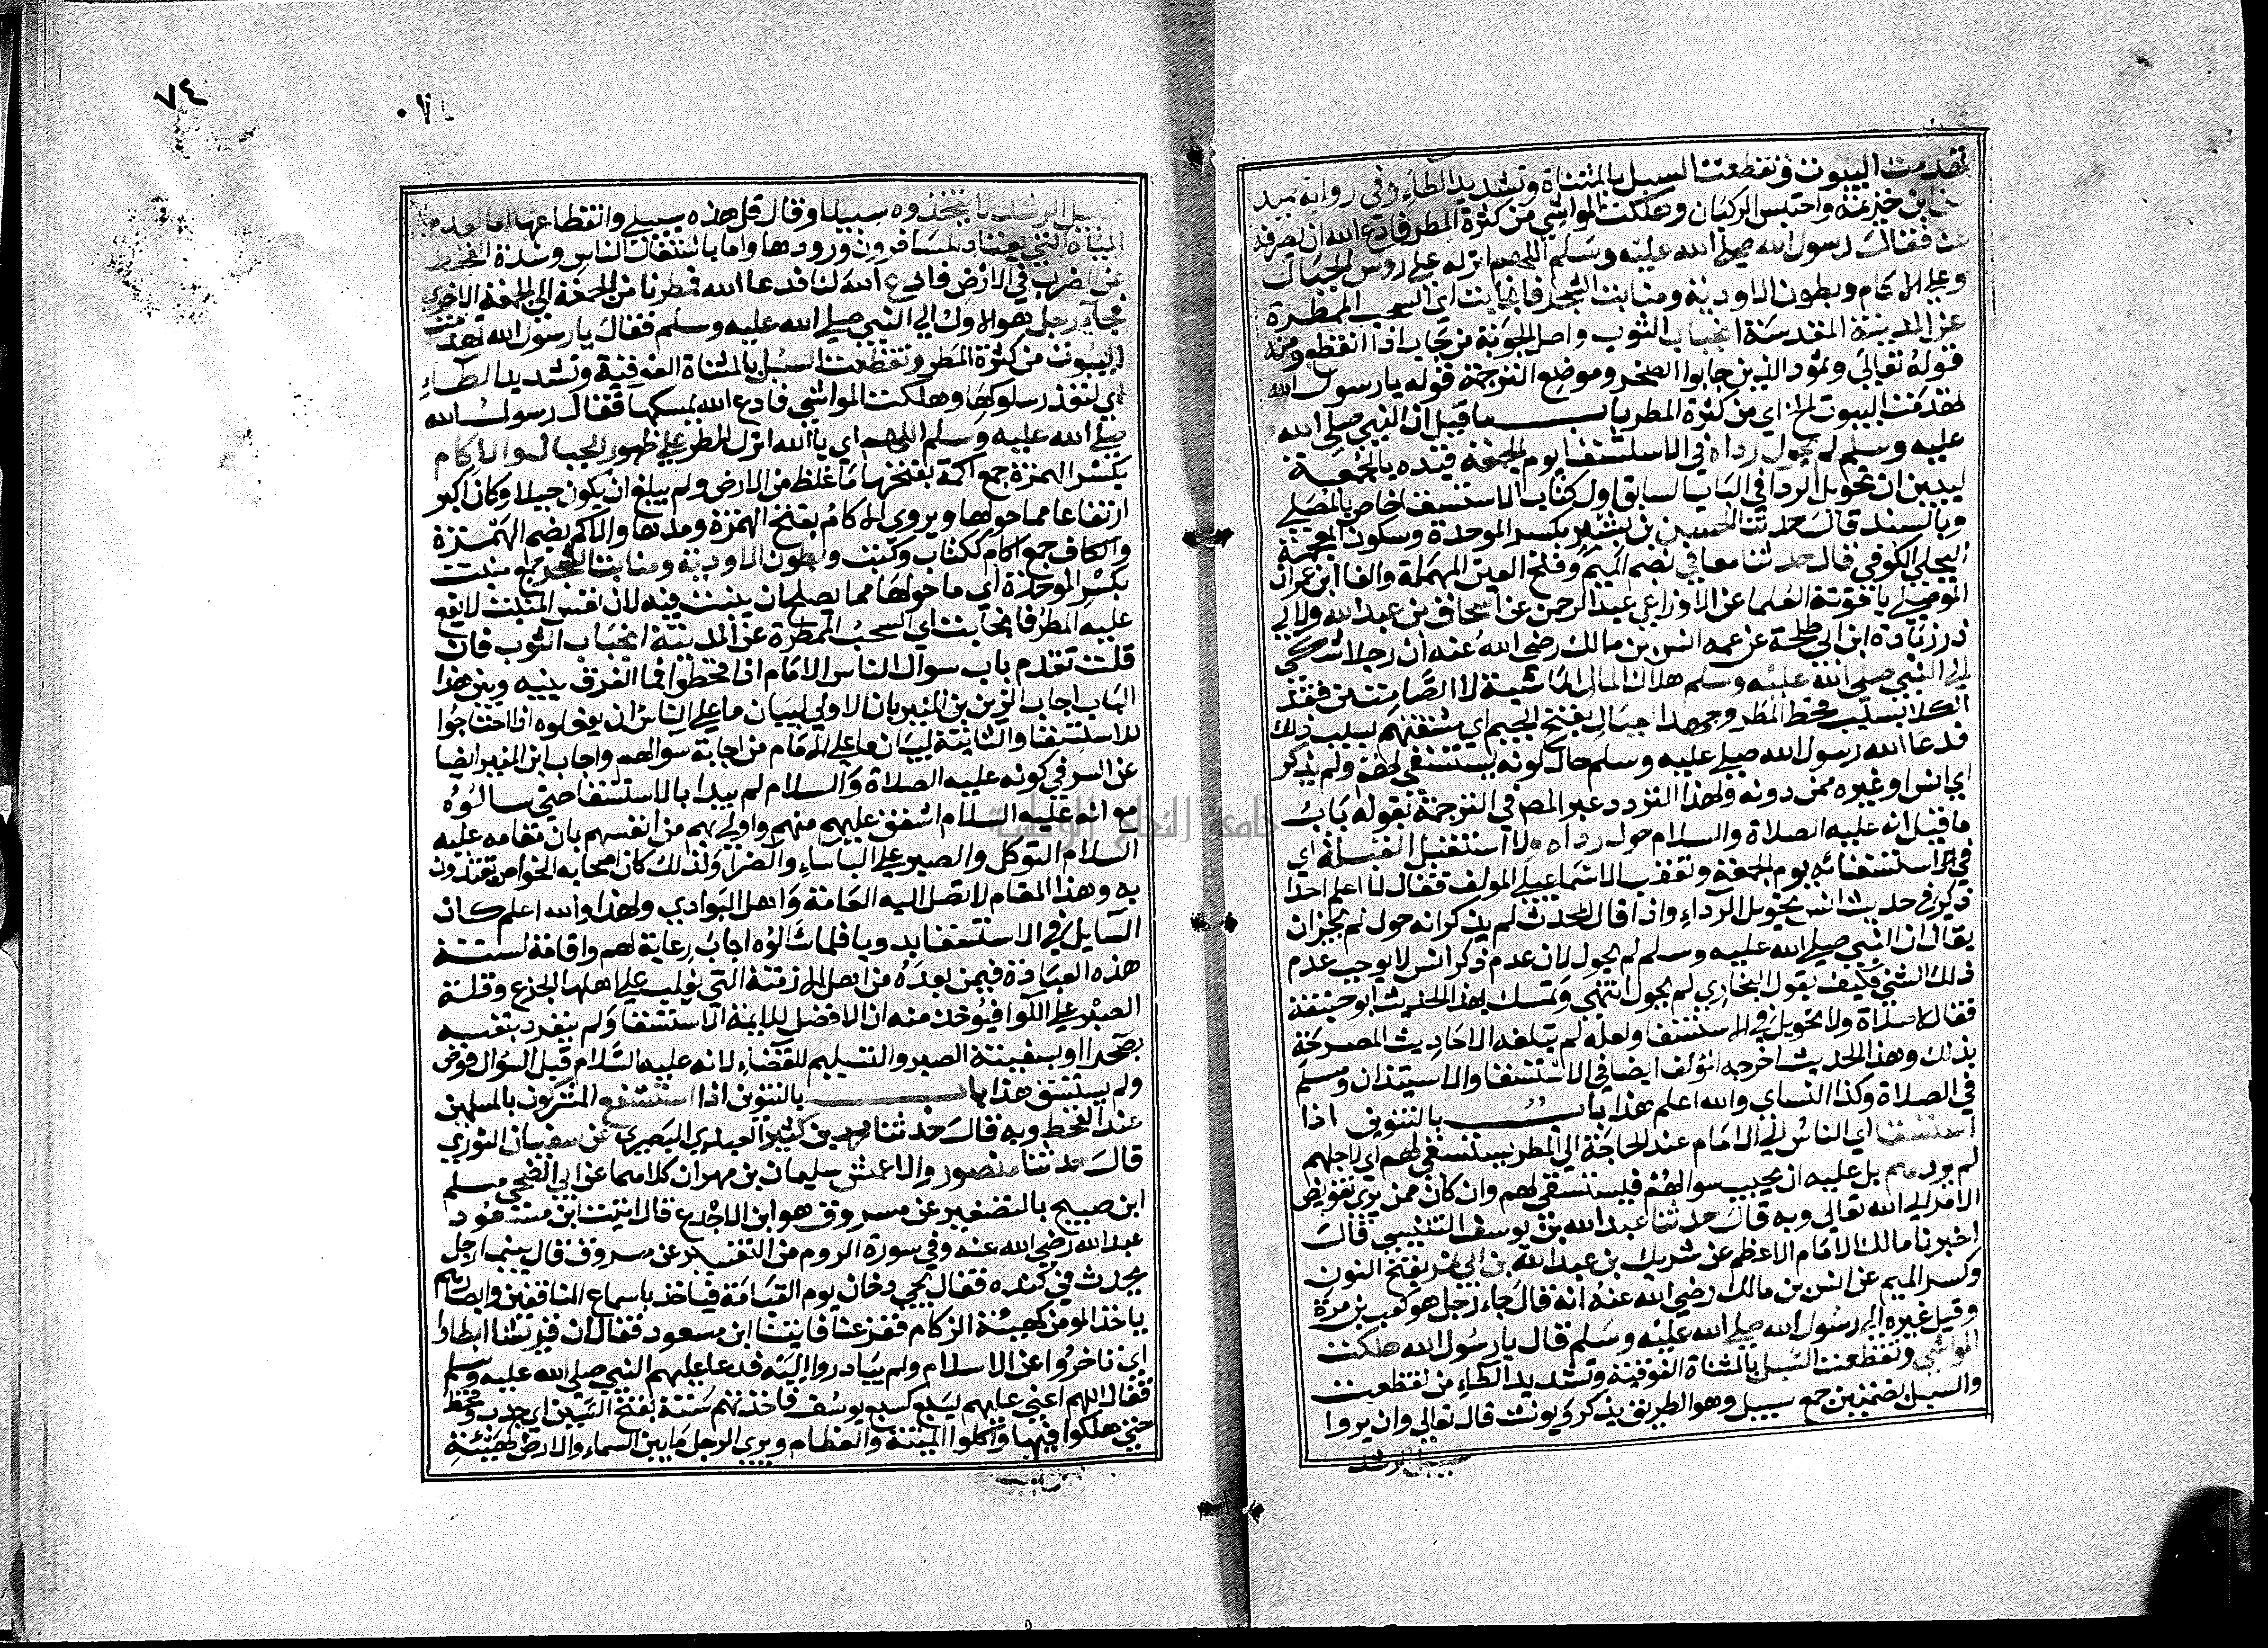 تهدمت البيوت وتقطعت السبل بالمثناة وتشديد الطاء وفي رواية حميد
عن ابن خزيمة واحتبس الركبان وهلكت المواشي من كثرة المطر فادع الله ان يصرفه
عنا فقال رسول الله صلى الله عليه وسلم اللهم انزله على روس الجبال
وعلى الاكام وبطون الاودية ومنابت الشجر فانجابت اي السحب الممطرة
عن المدينة المقدسة انجياب الثوب واصل الجوبة من جاب اذا انقطع ومنه
قوله تعالى وثمود الذين جابوا الصخر وموضع الترجمة قوله يا رسول الله
تهدمت البيوت الخ اي من كثرة المطر باب ما قيل ان النبي صلى الله
عليه وسلم لم يحول رداه في الاستسقا يوم الجمعة قيده بالجمعة
ليبين ان تحويل الردا في الباب السابق اول كتاب الاستسقا خاص بالمصلى
وبالسند قال حدثنا الحسين بن بشر بكسر الموحدة وسكون المعجمة
البجلي الكوفي قال حدثنا معافى بضم الميم وفتح العين المهملة والفا ابن عمران
الموصلي ياقوتة العلما عن الاوزاعي عبد الرحمن عن اسحاق بن عبد الله ولابي
ذر زيادة ابن ابي طلحة عن عمه انس بن مالك رضي الله عنه ان رجلا شكى
الى النبي صلى الله عليه وسلم هلاك المال الماشية لا الصامت من فقد
الكلا بسبب قحط المطر وجهد العيال بفتح الجيم اي مشقتهم بسبب ذلك
فدعا الله رسول الله صلى عليه وسلم حال كونه يستسقي لهم ولم يذكر
اي انس او غيره ممن دونه ولهذا التردد عبر المص في الترجمة بقوله باب
ما قيل انه عليه الصلاة والسلام حول رداه ولا استقبل القبلة اي
في استسقائه يوم الجمعة وتعقب الاسماعيلي المولف فقال لا اعلم احدا
ذكر في حديث انس تحويل الرداء واذا قال المحدث لم يذكر انه حول لم يجز ان
يقال ان النبي صلى الله عليه وسلم لم يحول لان عدم ذكر انس لا يوجب عدم
ذلك الشي فكيف يقول البخاري لم يحول انتهى وتمسك بهذا الحديث ابو حنيفة
فقال لا صلاة ولا تحويل في الاستسقا ولعله لم تبلغه الاحاديث المصرحة
بذلك وهذا الحديث اخرجه المولف ايضا في الاستسقا والاستيذان ومسلم
في الصلاة وكذا النساي والله اعلم هذا باب بالتنوين اذا
استشفعوا اي الناس الى الامام عند الحاجة الى المطر ليستسقي لهم اي لاجلهم
لم يردهم بل عليه ان يجيب سوالهم فيستسقي لهم وان كان ممن يرى تفويض
الامر الى الله تعالى وبه قال حدثنا عبد الله بن يوسف التنيسي قال
اخبرنا مالك الامام الاعظم عن شريك بن عبد الله بن ابي نمر بفتح النون
وكسر الميم عن انس بن مالك رضي الله عنه انه قال جاء رجل هو كعب بن مرة
وقيل غيره الى رسول الله صلى الله عليه وسلم قال يا رسول الله هلكت
المواشي وتقطعت السبل بالمثناة الفوقية وتشديد الطاء من تقطعت
والسبل بضمتين جمع سبيل وهو الطريق يذكر ويونث قال تعالى وان يروا
سبيل الرشد
٧٤
سبيل الرشد لا يتخذوه سبيلا وقال قل هذه سبيلي وانقطاعها اما بعدم
المياه التي يعتاد المسافرون ورودها واما باشتغال الناس وشدة القحط
عن الضرب في الارض فادع الله لنا فدعا الله فمطرنا من الجمعة الى الجمعة الاخرى
فجاء رجل هو الاول الى النبي صلى الله عليه وسلم فقال يا رسول الله تهدمت
البيوت من كثرة المطر وتقطعت السبل بالمثناة الفوقية وتشديد الطاء
اي لتعذر سلوكها وهلكت المواشي فادع الله يمسكها فقال رسول الله
صلى الله عليه وسلم اللهم اي يا الله انزل المطر على ظهور الجبال والاكام
بكسر الهمزة جمع اكمة بفتحها ما غلظ من الارض ولم يبلغ ان يكون جبلا وكان اكبر
ارتفاعا مما حولها ويروى الاكام بفتح الهمزة ومدها والاكم بضم الهمزة
والكاف جمع اكام ككتاب وكتب وبطون الاودية ومنابت الشجر جمع منبت
بكسر الموحدة اي ما حولها مما يصلح ان ينبت فيه لان نفس المنبت لا يقع
عليه المطر فانجابت اي السحب الممطرة عن المدينة انجياب الثوب فان
قلت تقدم باب سوال الناس الامام اذا قحطوا فما الفرق بينه وبين هذا
الباب اجاب الزين بن المنير بان الاولى لبيان ما على الناس ان يفعلوه اذا احتاجوا
للاستسقا والثانية لبيان ما على الامام من اجابة سوالهم واجاب ابن المنير ايضا
عن السر في كونه عليه الصلاة والسلام لم يبدا بالاستسقا حتى سالوه
مع انه عليه السلام اشفق عليهم منهم واولى بهم من انفسهم بان مقامه عليه
السلام التوكل والصبر على الباساء والضرا ولذلك كان اصحابه الخواص يقتدون
به وهذا المقام لا تصل اليه العامة واهل البوادي ولهذا والله اعلم كان
السايل في الاستسقا بدويا فلما سالوه اجاب رعاية لهم واقامة لسنة
هذه العبادة فيمن بعده من اهل الازمنة التي يغلب على اهلها الجزع وقلة
الصبر على اللاوا فيوخذ منه ان الافضل للايمة الاستسقا ولمن ينفرد بنفسه
بصحرا او بسفينة الصبر والتسليم للقضاء لانه عليه السلام قبل السوال فوض
ولم يستسق هذا باب بالتنوين اذا استشفع المشركون بالمسلمين
عند القحط وبه قال حدثنا محمد بن كثير العبدي البصري عن سفيان الثوري
قال حدثنا منصور والاعمش سليمان بن مهران كلاهما عن ابي الضحى مسلم
ابن صبيح بالتصغير عن مسروق هو ابن الاجدع قال اتيت ابن مسعود
عبد الله رضي الله عنه وفي سورة الروم من التفسير عن مسروق قال بينما رجل
يحدث في كنده فقال يجي دخان يوم القيامة فياخذ باسماع المنافقين وابصارهم
ياخذ المومن كهيئة الزكام ففزعنا فاتينا ابن مسعود فقال ان قريشا ابطاوا
اي تاخروا عن الاسلام ولم يبادروا اليه فدعا عليهم النبي صلى الله عليه وسلم
فقال اللهم اعني عليهم بسبع كسبع يوسف فاخذتهم سنة بفتح السين اي جدب وقحط
حتى هلكوا فيها واكلوا الميتة والعظام ويرى الرجل ما بين السماء والارض كهيئة
جامعة النجاح الوطنية